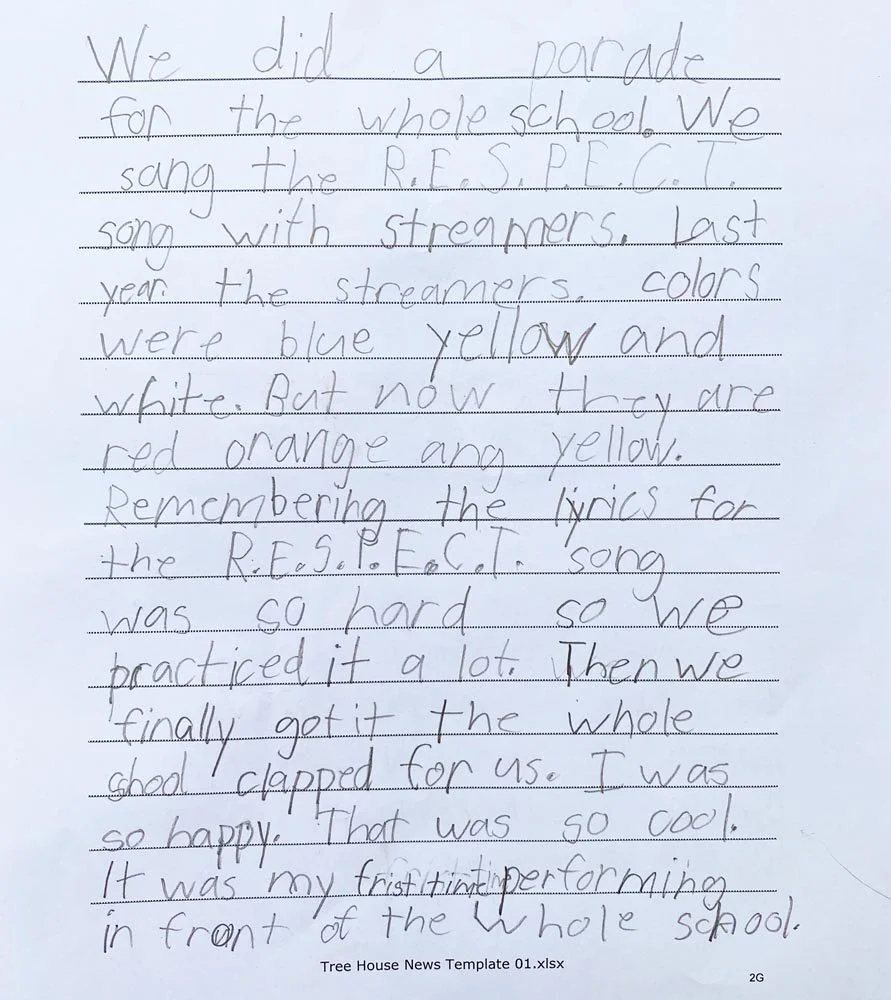 We did a parade
for the whole school. We
sang the R.E.S.P.E.C.T.
song with streamers. Last
year the streamers. colors
were blue yellow and
white. But now they are
red orange ang yellow.
Remembering the lyrics for
the R.E.S.P.E.C.T. song
was so hard so we
practiced it a lot. Then we
finally got it the whole
shool clapped for us. I was
so happy. That was so cool.
It was my frist time performing
in front of the whole school.
Tree House News Template 01.xlsx
2G